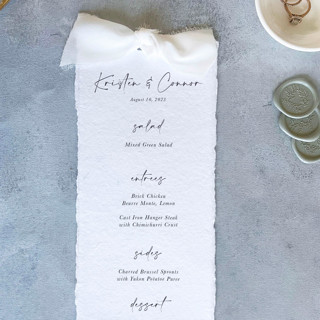 Kristen & Connor
August 19, 2022
salad
Mixed Green Salad
entrees
Brick Chicken
Beurre Monte, Lemon
Cast Iron Hanger Steak
with Chimicharri Crust
sides
Charred Brussel Sprouts
with Yukon Potatoe Puree
dessert